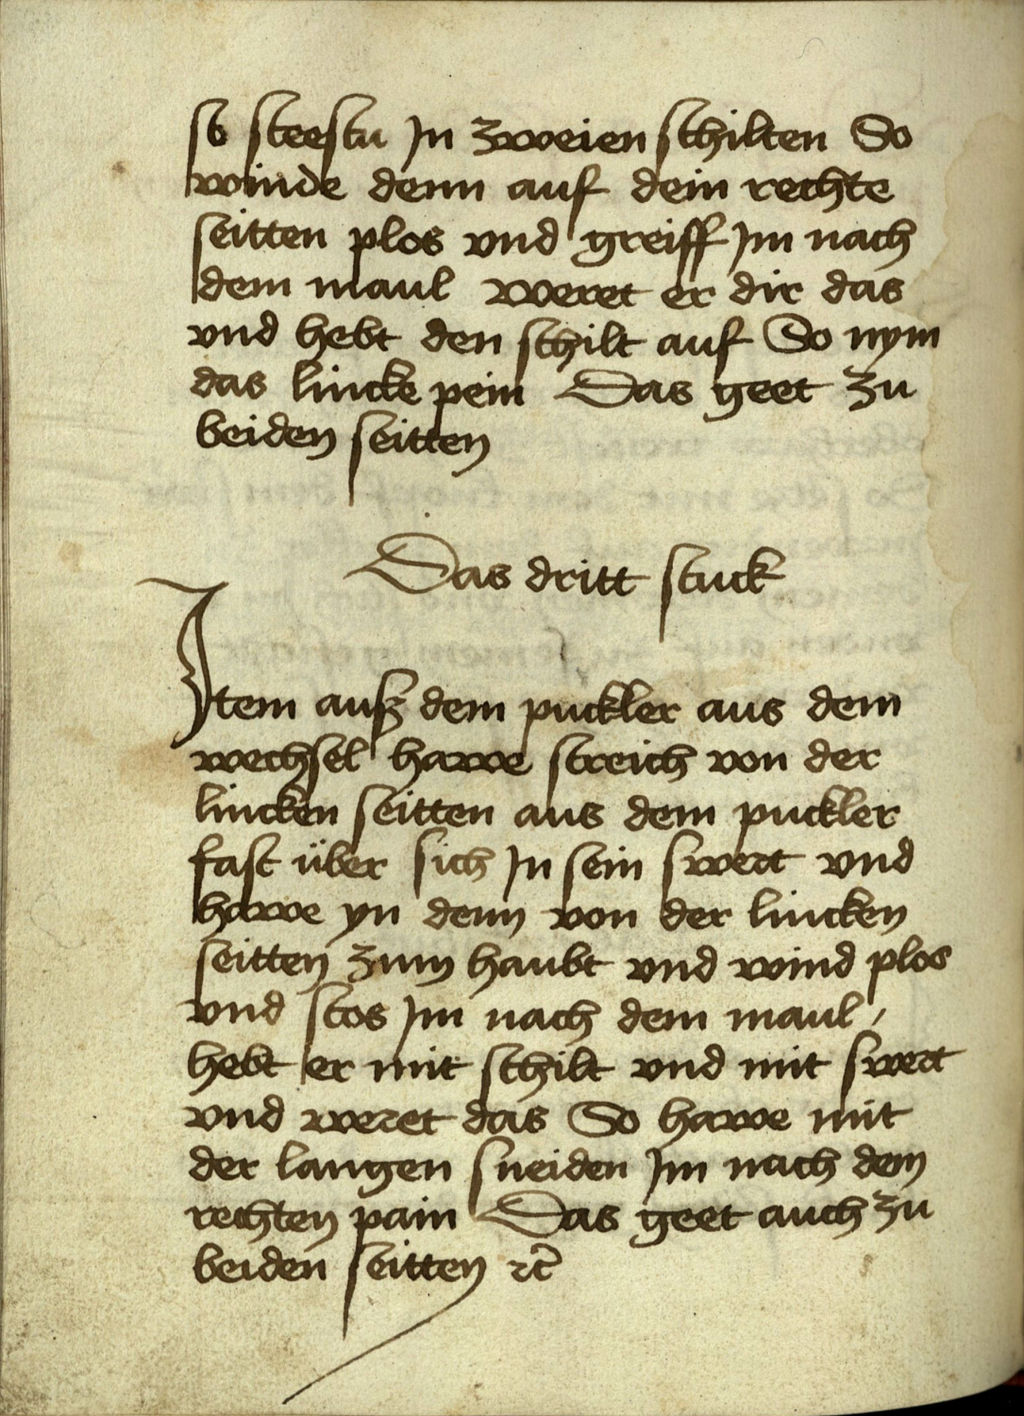 so steestu Jn zweien schilten So
winde denn auf dein rechte
seitten plos vnd greiff Jm nach
dem maul weret er dir das
vnd hebt den schilt auf So nym
das lincke pein Das geet zu
beiden seitten
Das dritt stuck
Jtem ausz dem puckler aus dem
wechsel hawe streich von der
lincken seitten aus dem puckler
fast über sich Jn sein swert vnd
hawe yn denn von der lincken
seitten zum haubt vnd wind plos
vnd stos Jm nach dem maul /
hebt er mit schilt vnd mit swert
vnd weret das So hawe mit
der langen sneiden Jm nach dem
rechten pain Das geet auch zu
beiden seitten ꝛc̃